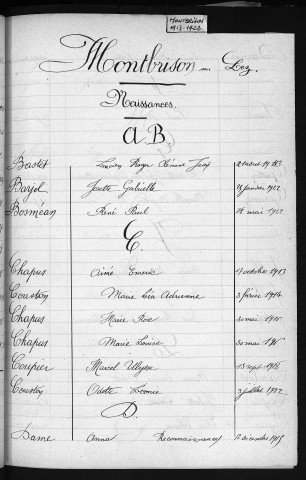 MONTBRISON
1913-1922
Montbrison sur Lez.
Naissances.
A B
Bastet Lucien Roger 2 août 1913
Barjol Yvette Gabrielle janvier 1922
Bosméan René Paul 18 mai 1922
C.
Chapus Aimé Emeric octobre 1913
Couston Marie Léa Adrienne 3 février 1914
Chapus Marie Rose 30 mai
Chapus Marie Louise 30 mai
Coupier Marcel Ulysse 13 sept
Couston Odette Léonie 3 juillet 1922
D.
Dame Anna (Reconnaissance) décembre